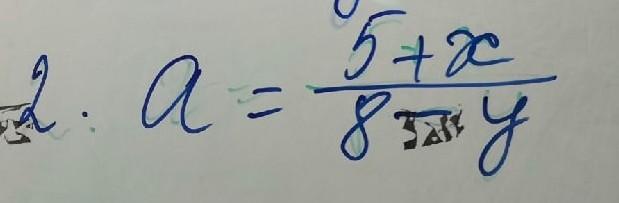 2. a = \frac{5+x}{8-y}